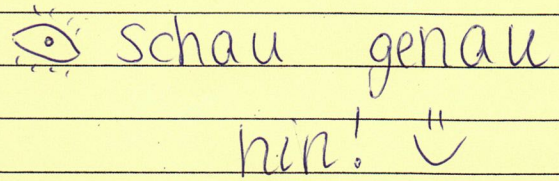 schau genau
hin!